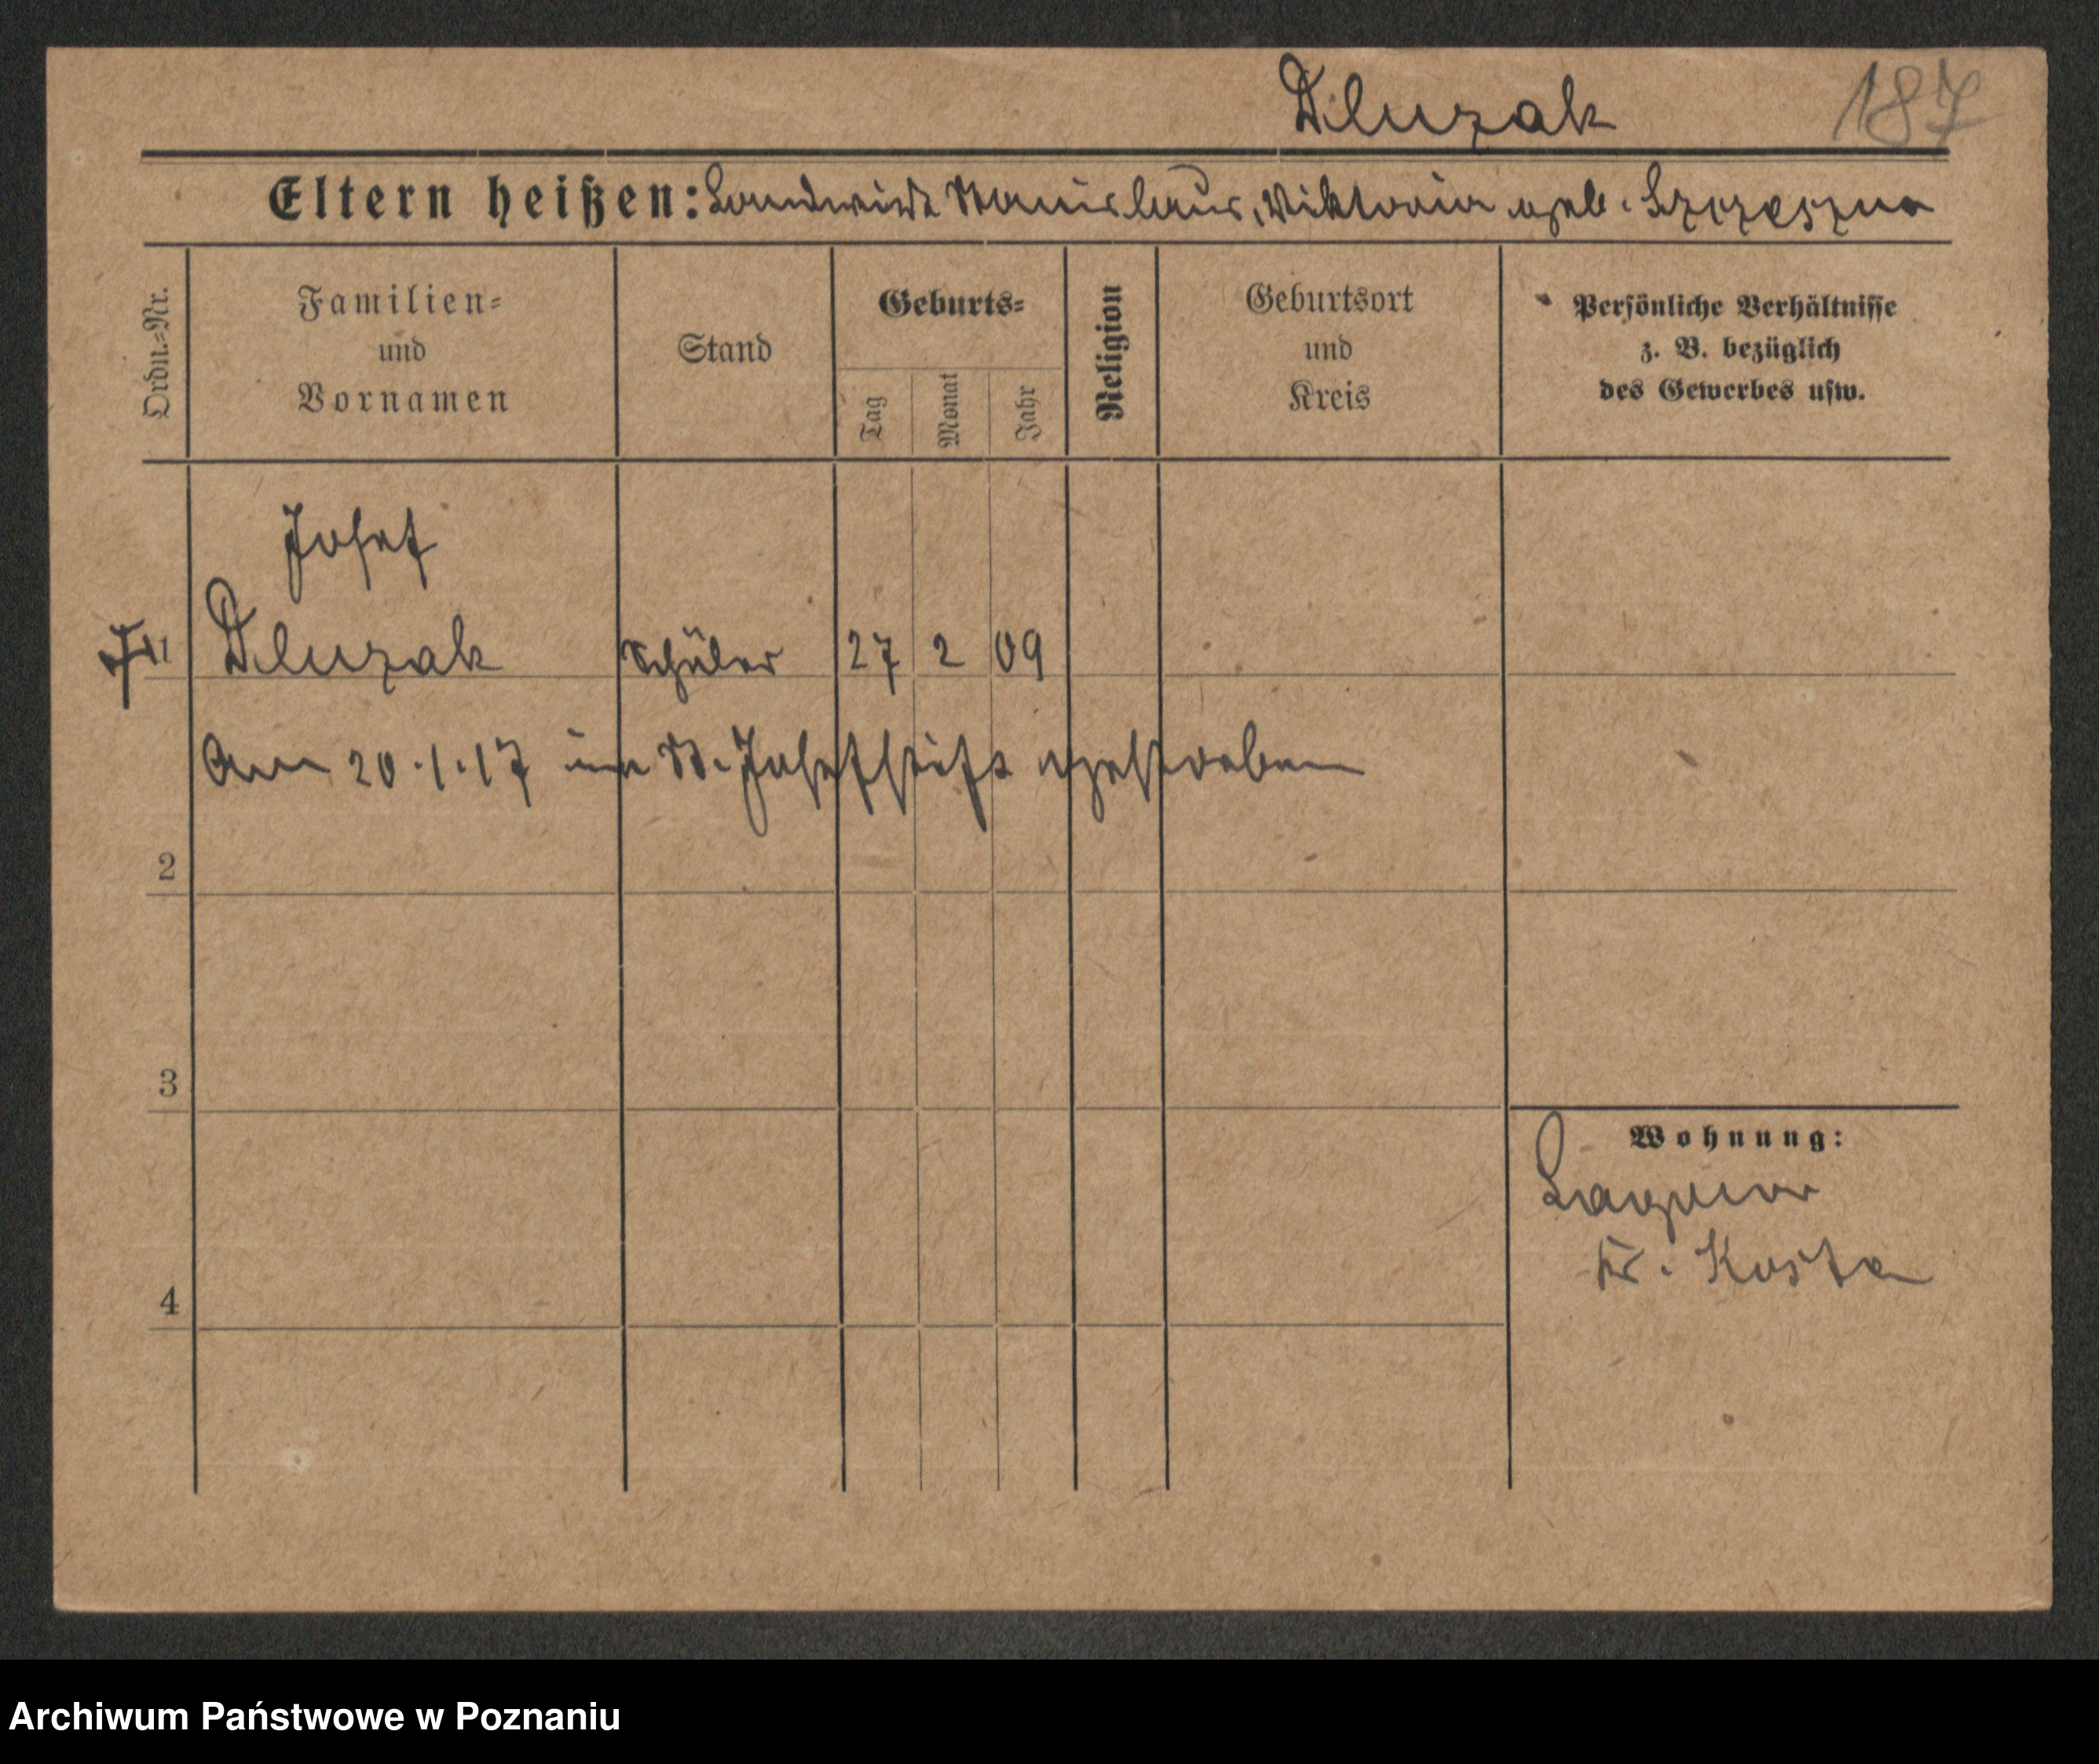 Dluzak 187
Eltern heißen: Landwirt Stanislaus, Viktoria geb. Szczeszna
Ordn.=Nr.
Familien=
und
Vornamen
Stand
Geburts=
Tag
Monat
Jahr
Religion
Geburtsort
und
Kreis
Persönliche Verhältnisse
z. B. bezüglich
des Gewerbes usw.
Josef
1 Dluzak Schüler 27 2 09
Am 20.1.17 im St. Josefstift gestorben
2
3
Wohnung:
Kr. Kosten
4
Archiwum Państwowe w Poznaniu